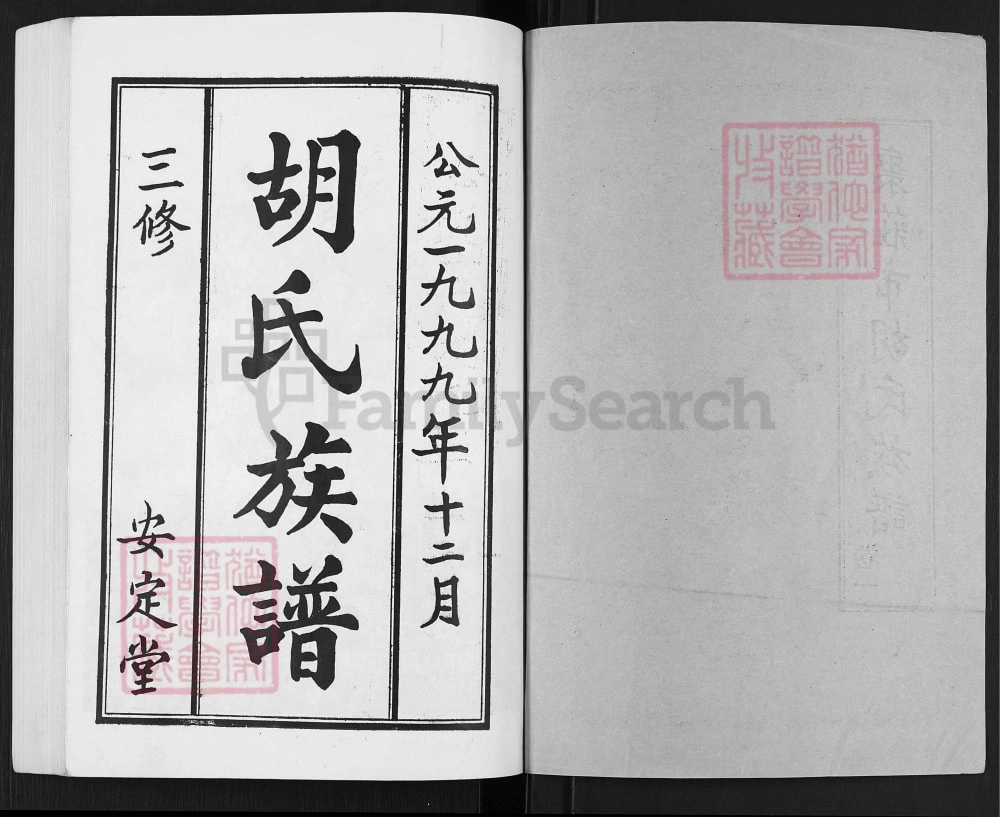 公元一九九九年十二月
胡氏族譜
三修
安定堂
猶他家
譜學會
收藏
FamilySearch